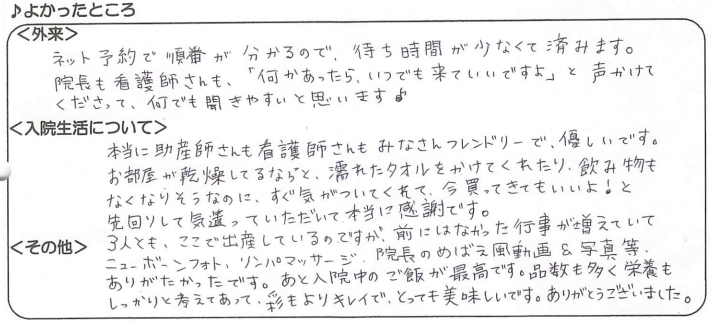 ♪よかったところ
<外来>
ネット予約で順番が分かるので、待ち時間が少なくて済みます。
院長も看護師さんも、「何かあったら、いつでも来ていいですよ」と声かけて
くださって、何でも聞きやすいと思います♪
<入院生活について>
本当に助産師さんも看護師さんもみなさんフレンドリーで、優しいです。
お部屋が乾燥してるならと、濡れたタオルをかけてくれたり、飲み物も
なくなりそうなのに、すぐ気がついてくれて、今買ってきてもいいよ!と
先回りして気遣っていただいて本当に感謝です。
<その他>
3人とも、ここで出産しているのですが、前にはなかった行事が増えていて
ニューボーンフォト、リンパマッサージ、院長のめばえ風動画&写真等、
ありがたかったです。あと入院中のご飯が最高です。品数も多く栄養も
しっかりと考えてあって、彩もよりキレイで、とっても美味しいです。ありがとうございました。